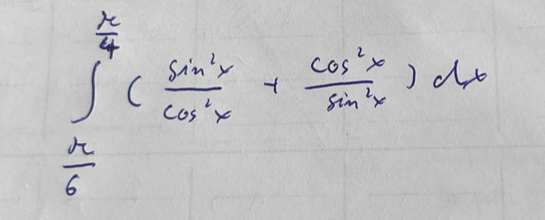 ∫_{π/6}^{π/4} ( sin²x / cos²x + cos²x / sin²x ) dx